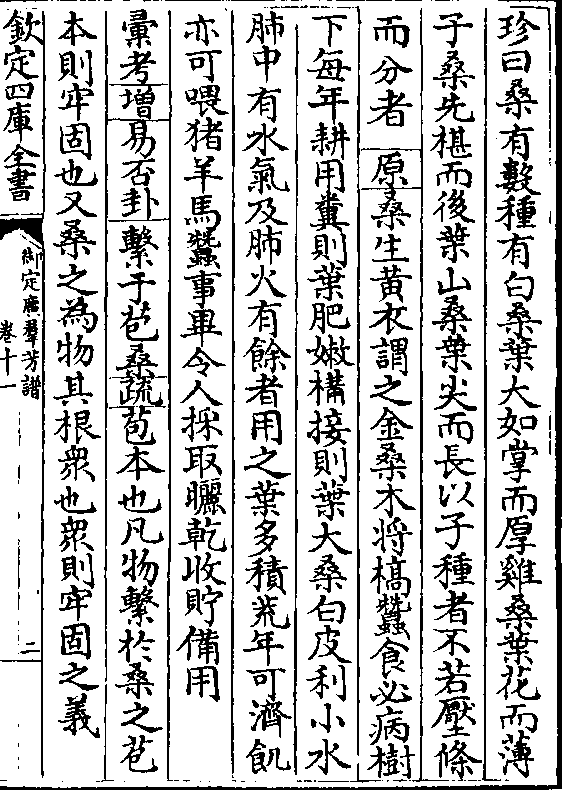 珍曰桑有數種有白桑葉大如掌而厚雞桑葉花而薄
子桑先椹而後葉山桑葉尖而長以子種者不若壓條
而分者 原桑生黄衣謂之金桑木將槁蠶食必病樹
下每年耕用糞則葉肥嫩構接則葉大桑白皮利小水
肺中有水氣及肺火有餘者用之葉多積荒年可濟飢
亦可喂猪羊馬蠶事畢令人採取曬乾收貯備用
彚考增易否卦繫于苞桑疏苞本也凡物繫於桑之苞
本則牢固也又桑之為物其根衆也衆則牢固之義
欽定四庫全書
御定廣羣芳譜
卷十一
二